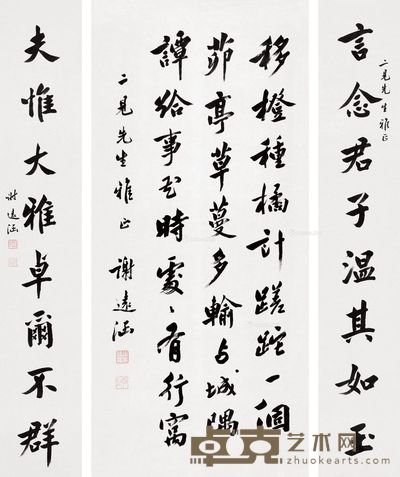 言念君子溫其如玉
二見先生雅正
移橙種橘計蹉跎一個
茆亭草蔓多輸与城隅
譚給事花時處〻有行窩
二見先生雅正 謝遠涵
夫惟大雅卓爾不群
謝遠涵
卓克艺术网
www.zhuokearts.com